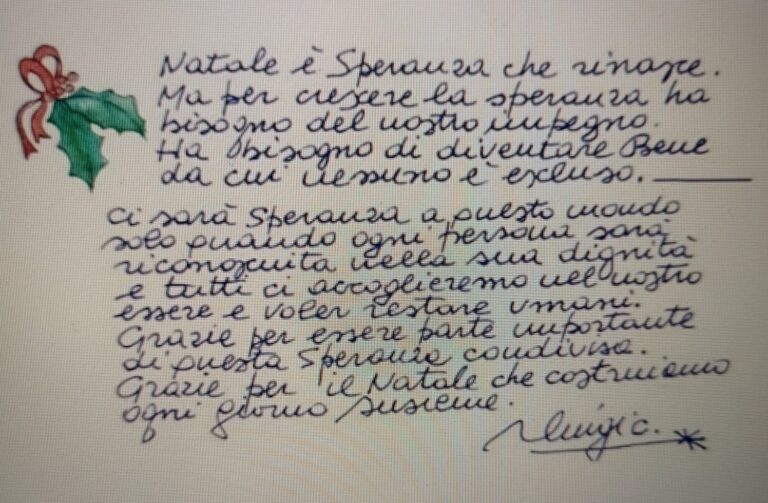 Natale è Speranza che rinasce.
Ma per crescere la speranza ha
bisogno del nostro impegno.
Ha bisogno di diventare Bene
da cui nessuno è escluso.
Ci sarà Speranza a questo mondo
solo quando ogni persona sarà
riconosciuta nella sua dignità
e tutti ci accoglieremo nel nostro
essere e voler restare umani.
Grazie per essere parte importante
di questa Speranza condivisa.
Grazie per il Natale che costruiamo
ogni giorno insieme.
Luigi C.